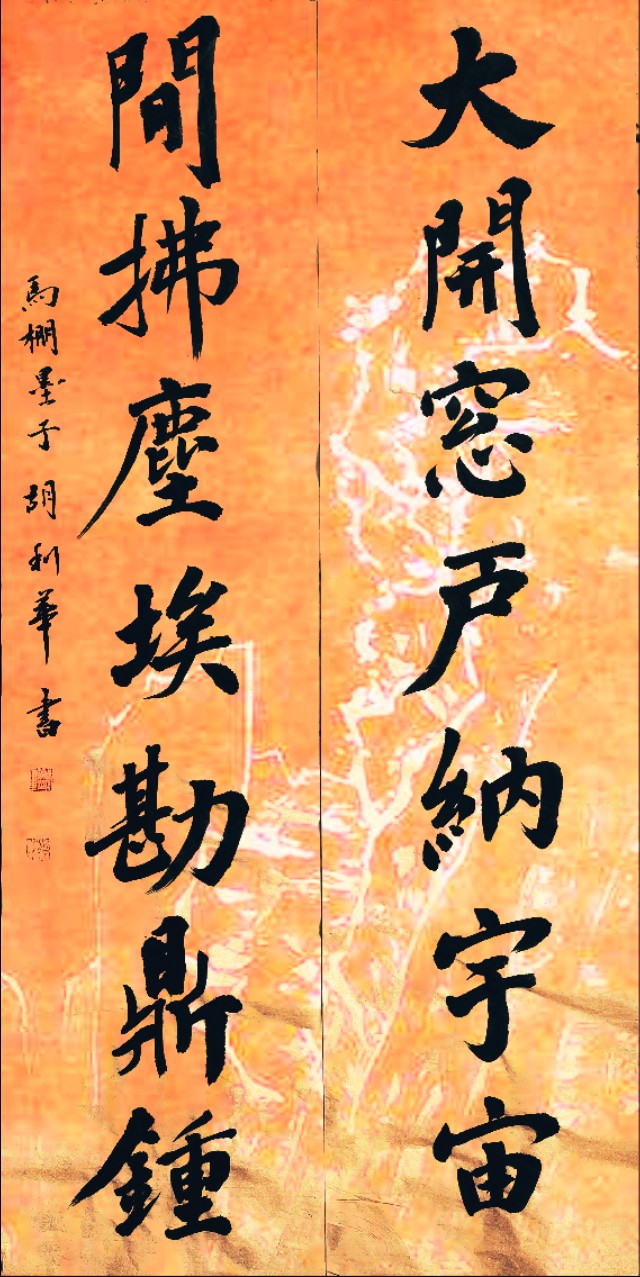 大開窓戸納宇宙
間拂塵埃勘鼎鍾
馬棚墨子胡利華書